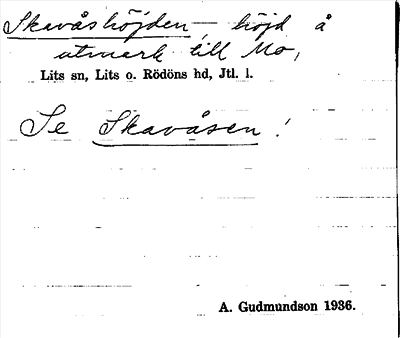 Skavåshöjden, höjd å
utmark till Mo,
Lits sn, Lits o. Rödöns hd, Jtl. l.
Se Skavåsen!
A. Gudmundson 1936.